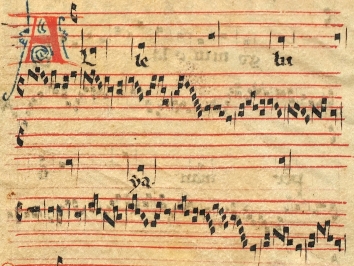 AL le lu
ya